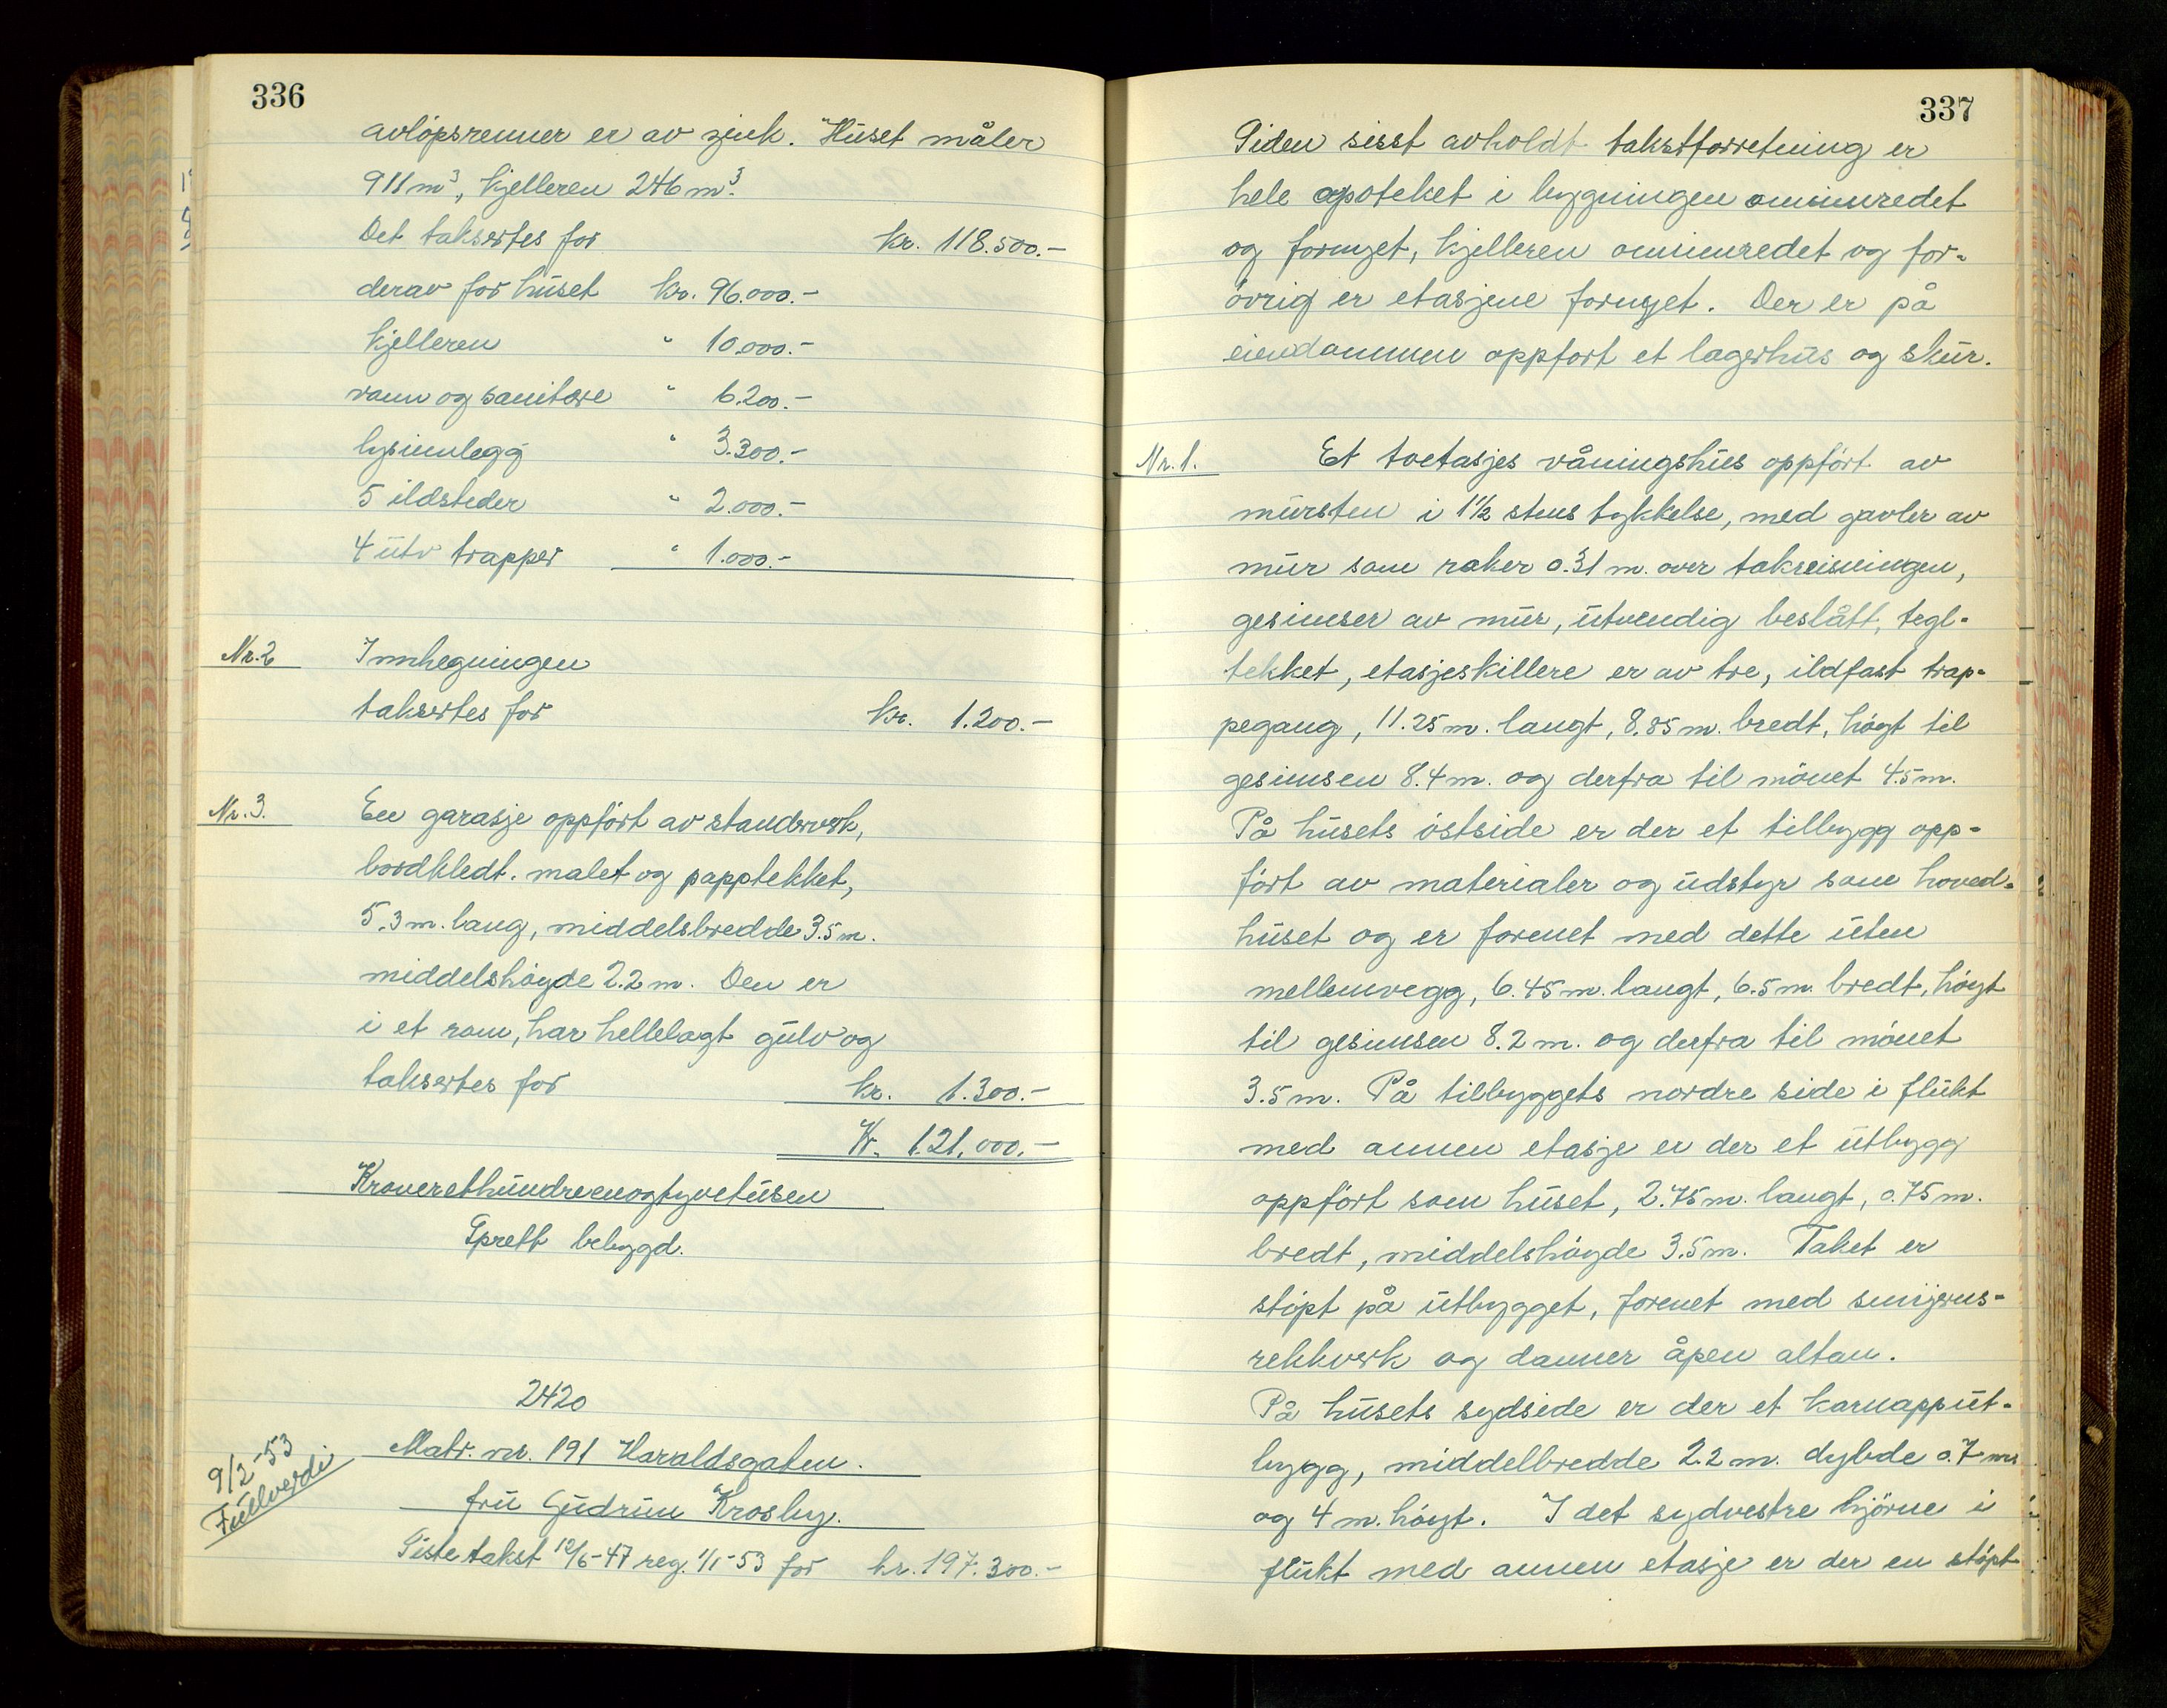 336
avlöpsrenner er av zink. Huset måler
911 m³, kjelleren 246 m³.
Det taksertes for kr. 118.500.-
derav for huset kr. 96.000.-
kjelleren " 10.000.-
vann og sanitære " 6.200.-
lysinnlegg " 3.300.-
5 ildsteder " 2.000.-
4 utv trapper " 1.000.-
Nr. 2 Innhegningen
taksertes for kr. 1.200.-
Nr. 3. En garasje oppfört av standerverk,
bordkledt. malet og papptekket,
5.3 m. lang, middelsbredde 3.5 m.
middelshöyde 2.2 m. Den er
i et rom, har hellelagt gulv og
taksertes for kr. 1.300.-
Kr. 121.000.-
Kronerethundreenogtyvetusen
Spredt bebygd.
2420
9/2-53
Fullverdi
Matr. nr. 191 Haraldsgaten.
fru Gudrun Krosby.
Siste takst 12/6-47 reg. 1/1-53 for kr. 197.300.-
337
Siden sisst avholdt takstforretning er
hele apoteket i bygningen ominnredet
og fornyet, kjelleren ominnredet og for-
övrig er etasjene fornyet. Der er på
eiendommen oppfört et lagerhus og skur.
Nr. 1. Et toetasjes våningshus oppfört av
mursten i 1½ stens tykkelse, med gavler av
mur som raker 0.31 m. over takreisningen,
gesimser av mur, utvendig beslått, tegl-
tekket, etasjeskillere er av tre, ildfast trap-
pegang, 11.25 m. langt, 8.85 m. bredt, höyt til
gesimsen 8.4 m. og derfra til mönet 4.5 m.
På husets östside er der et tilbygg opp-
fört av materialer og udstyr som hoved-
huset og er forenet med dette uten
mellemvegg, 6.45 m. langt, 6.5 m. bredt, höyt
til gesimsen 8.2 m. og derfra til mönet
3.5 m. På tilbyggets nordre side i flukt
med annen etasje er der et utbygg
oppfört som huset, 2.75 m. langt, 0.75 m.
bredt, middelshöyde 3.5 m. Taket er
stöpt på utbygget, forenet med smijerns-
rekkverk og danner åpen altan.
På husets sydside er der et karnapput-
bygg, middelbredde 2.2 m. dybde 0.7 m
og 4 m. höyt. I det sydvestre hjörne i
flukt med annen etasje er der en stöpt